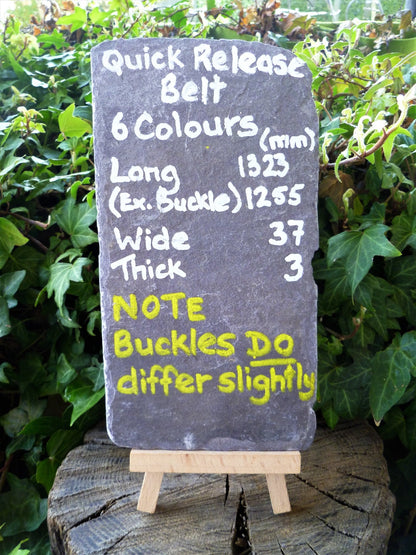 Quick Release
Belt
6 Colours (mm)
Long 1323
(Ex. Buckle) 1255
Wide 37
Thick 3
NOTE
Buckles DO
differ slightly